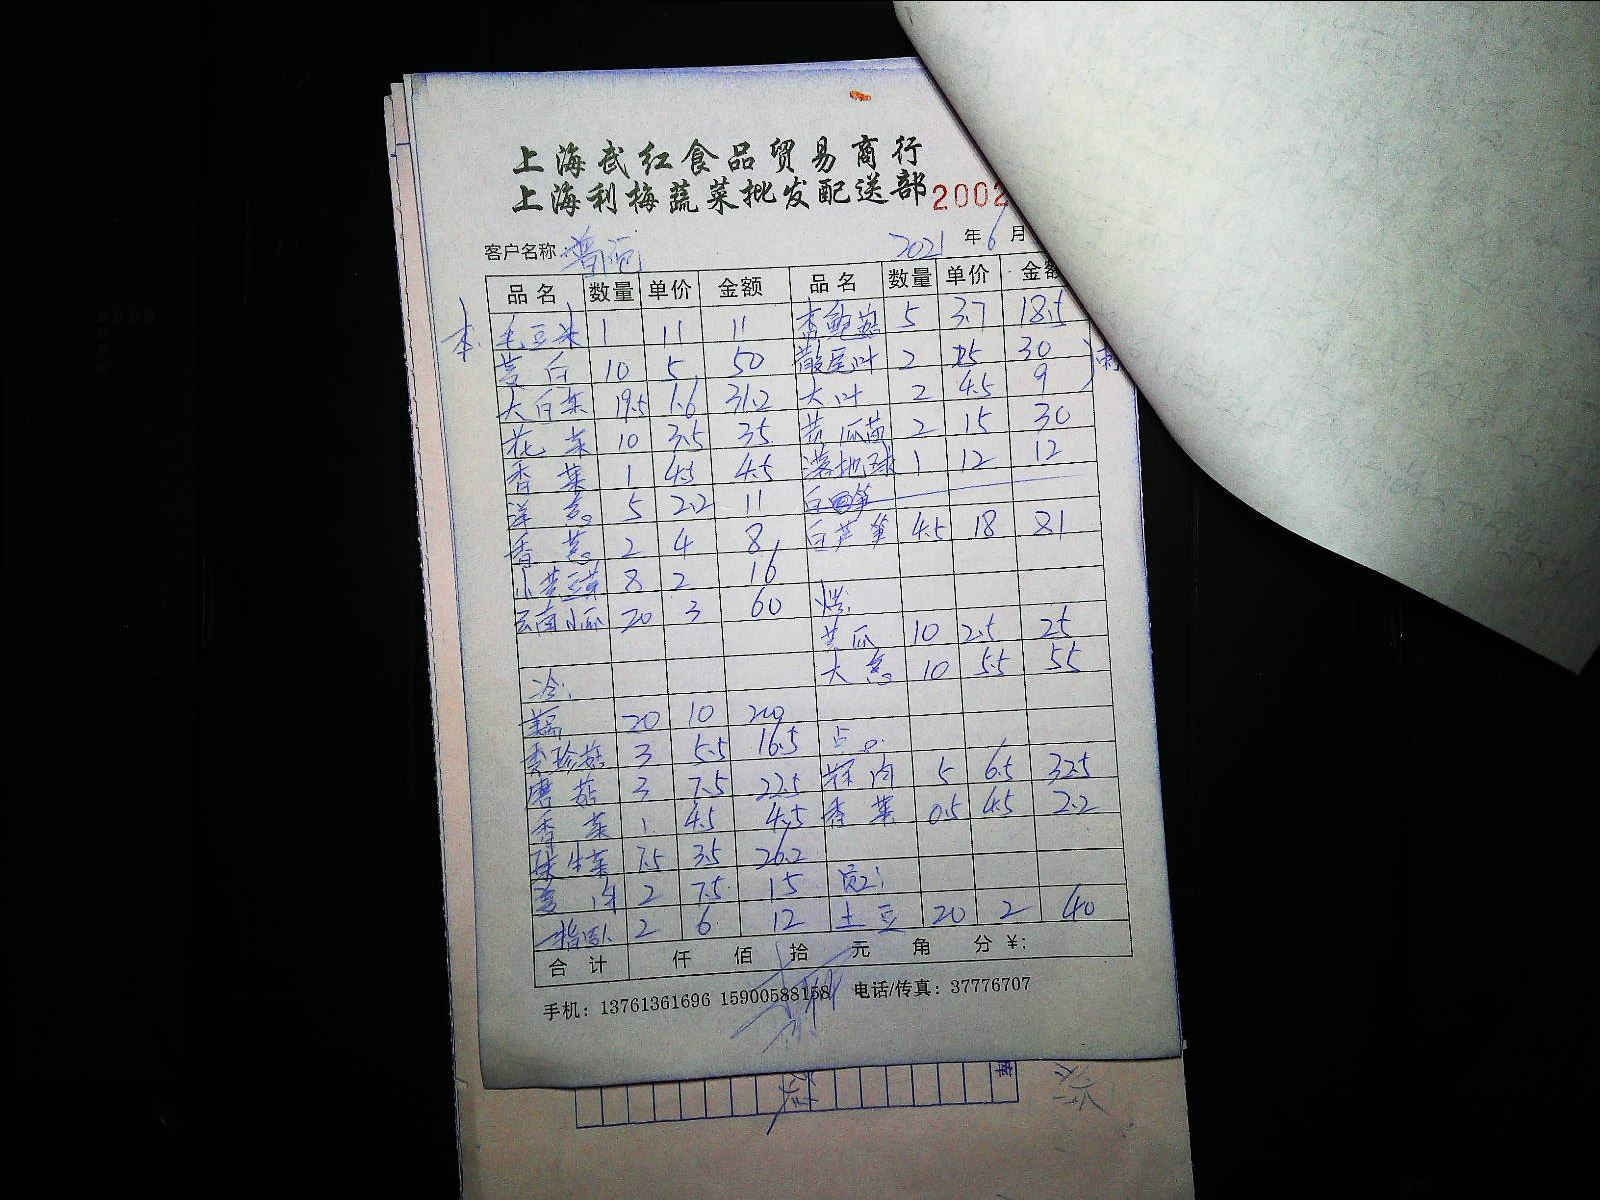 上海武红食品贸易商行
上海利梅蔬菜批发配送部 2002
客户名称: 2021 年 6 月
品名 数量 单价 金额 品名 数量 单价 金额
本. 毛豆米 1 11 11 杏鲍菇 5 3.7 18.5
茭白 10 5 50 散尾叶 2 15 30
大白菜 19.5 1.6 31.2 大叶 2 4.5 9
花菜 10 3.5 35 黄瓜苗 2 15 30
香菜 1 4.5 4.5 1 12 12
洋葱 5 2.2 11
香葱 2 4 8 白芦笋 4.5 18 81
小黄豆芽 8 2 16
云南小瓜 20 3 60
黄瓜 10 2.5 25
大葱 10 5.5 55
冷.
藕 20 10 200
秀珍菇 3 5.5 16.5 点心.
蘑菇 3 7.5 22.5 5 6.5 32.5
香菜 1 4.5 4.5 香菜 0.5 4.5 2.2
球生菜 7.5 3.5 26.2
2 7.5 15
2 6 12 土豆 20 2 40
合计 仟 佰 拾 元 角 分 ¥:
手机: 13761361696 15900588158 电话/传真: 37776707